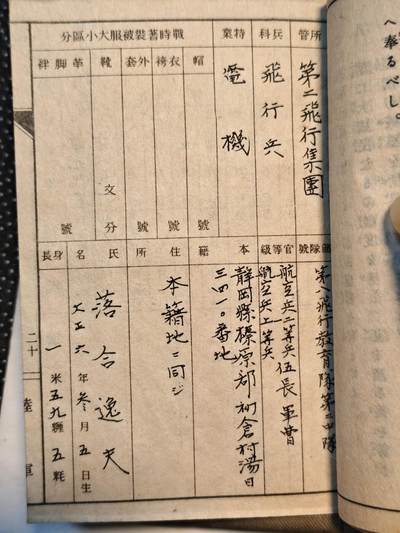 へ奉るべし。
所管
第二飛行集團
兵科
飛行兵
特業
電機
戰時著裝被服大小區分
帽
號
衣袴
號
外套
號
靴
文
分
革脚絆
號
隊號
飛行教育隊第二中隊
官等級
航空兵二等兵 伍長 軍曹
航空兵上等兵
本籍
靜岡縣榛原郡初倉村湯日
三四一〇番地
住所
本籍地ニ同ジ
氏名
落合逸夫
大正六年參月五日生
身長
一米五九糎五粍
二十
陸軍